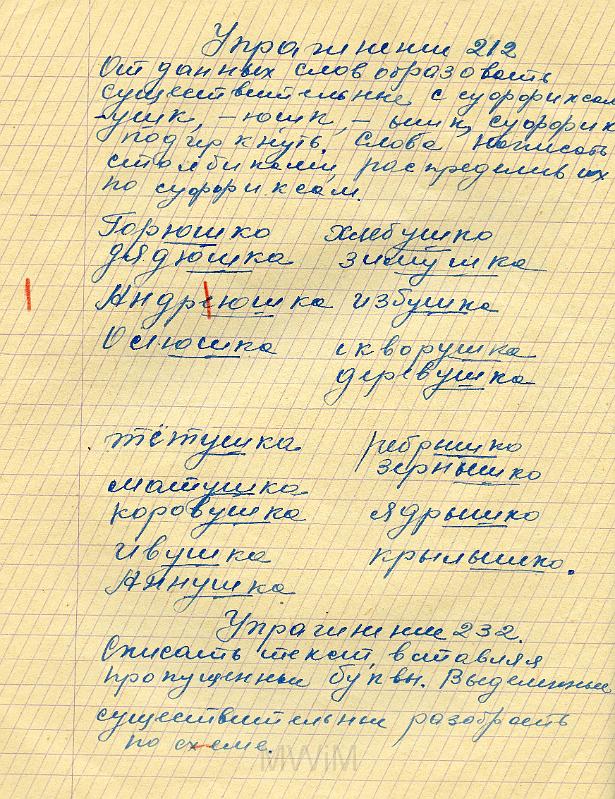 Упражнение 212
От данных слов образовать
существительные с суффиксам
-ушк, -юшк, -ышк, суффикс
подчеркнуть. Слова написать
столбиками, распределив их
по суффиксам.
Горюшко хлебушко
дядюшка зимушка
Андреюшка избушка
Осюшка скворушка
деревушка
тётушка ребрышко
зернышко
матушка
коровушка ядрышко
ивушка крылышко.
Аннушка
Упражнение 232.
Списать текст, вставляя
пропущенные буквы. Выделенные
существительные разобрать
по схеме.
MWiM